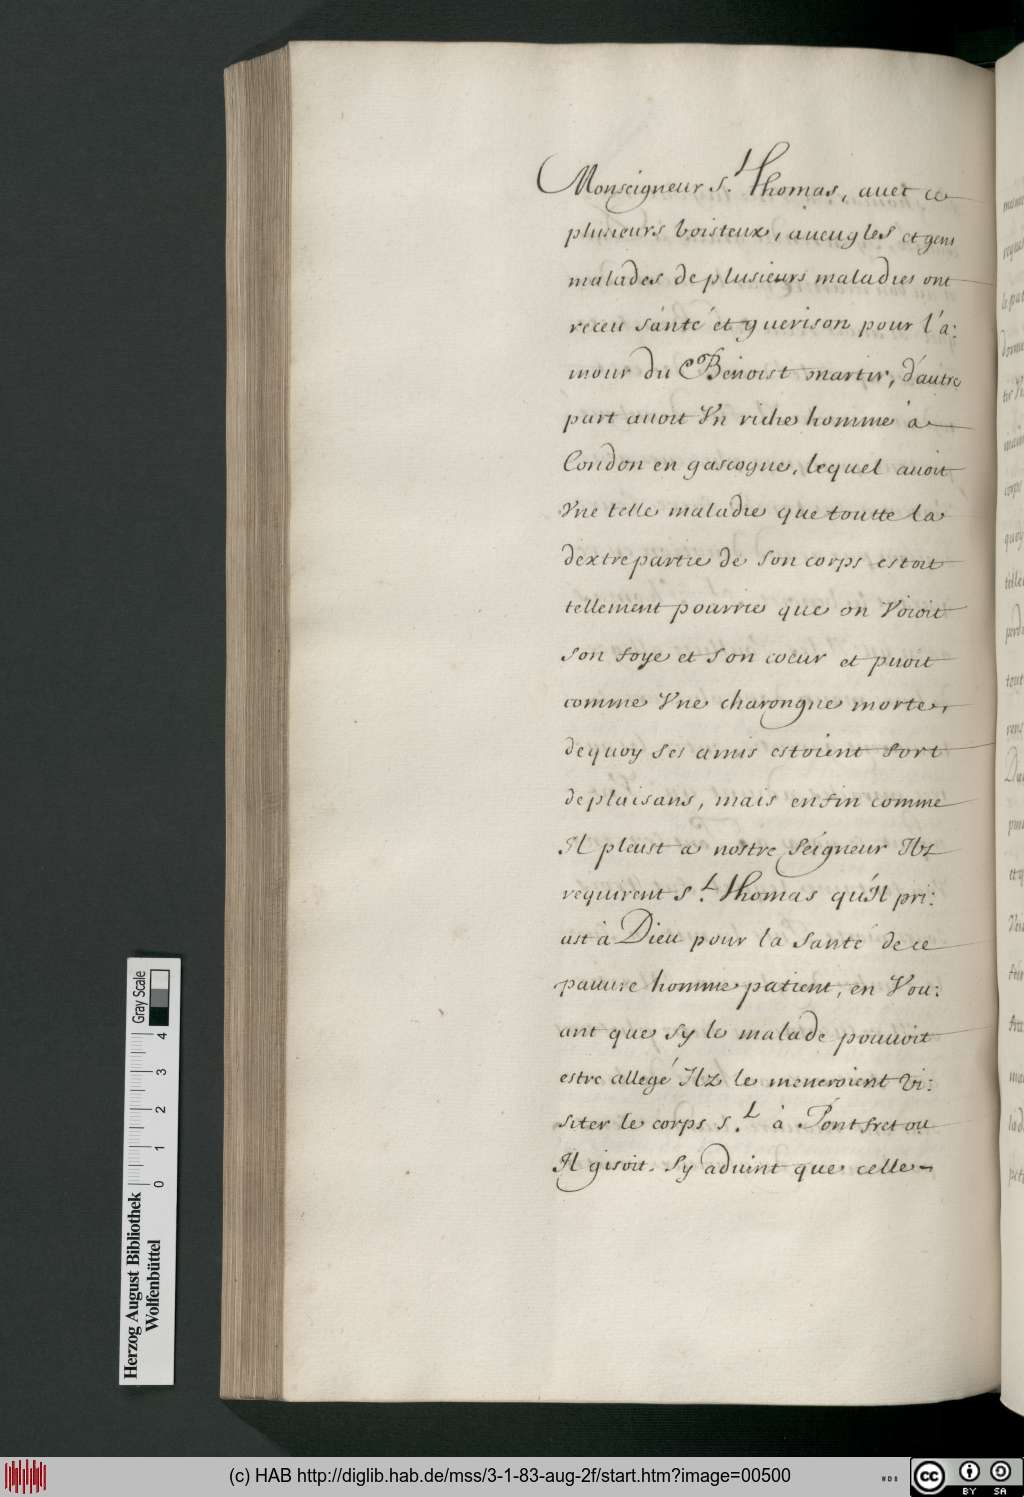 Monseigneur S.t Thomas, auec ce
plusieurs boisteux, aueugles et gens
malades de plusieurs maladies ont
receu santé et guerison pour l'a:
mour du Benoist martir, d'autre
part auoit Vn riche homme à
Condon en gascogne, lequel auoit
Vne telle maladie que toutte la
dextre partie de son corps estoit
tellement pourrie que on Voioit
son foye et son coeur et puoit
comme Vne charongne morte,
dequoy ses amis estoient fort
deplaisans, mais enfin comme
Il pleust a nostre Seigneur Ilz
requirent S.t Thomas qu'Il pri:
ast à Dieu pour la santé de ce
pauure homme patient, en Vou:
ant que sy le malade pouuoit
estre allegé Ilz le meneroient Vi:
siter le corps S.t à Pontfret ou
Il gisoit. Sy aduint que celle
Herzog August Bibliothek
Wolfenbüttel
0 1 2 3 4
Gray Scale
(c) HAB http://diglib.hab.de/mss/3-1-83-aug-2f/start.htm?image=00500
WDB
cc
BY SA